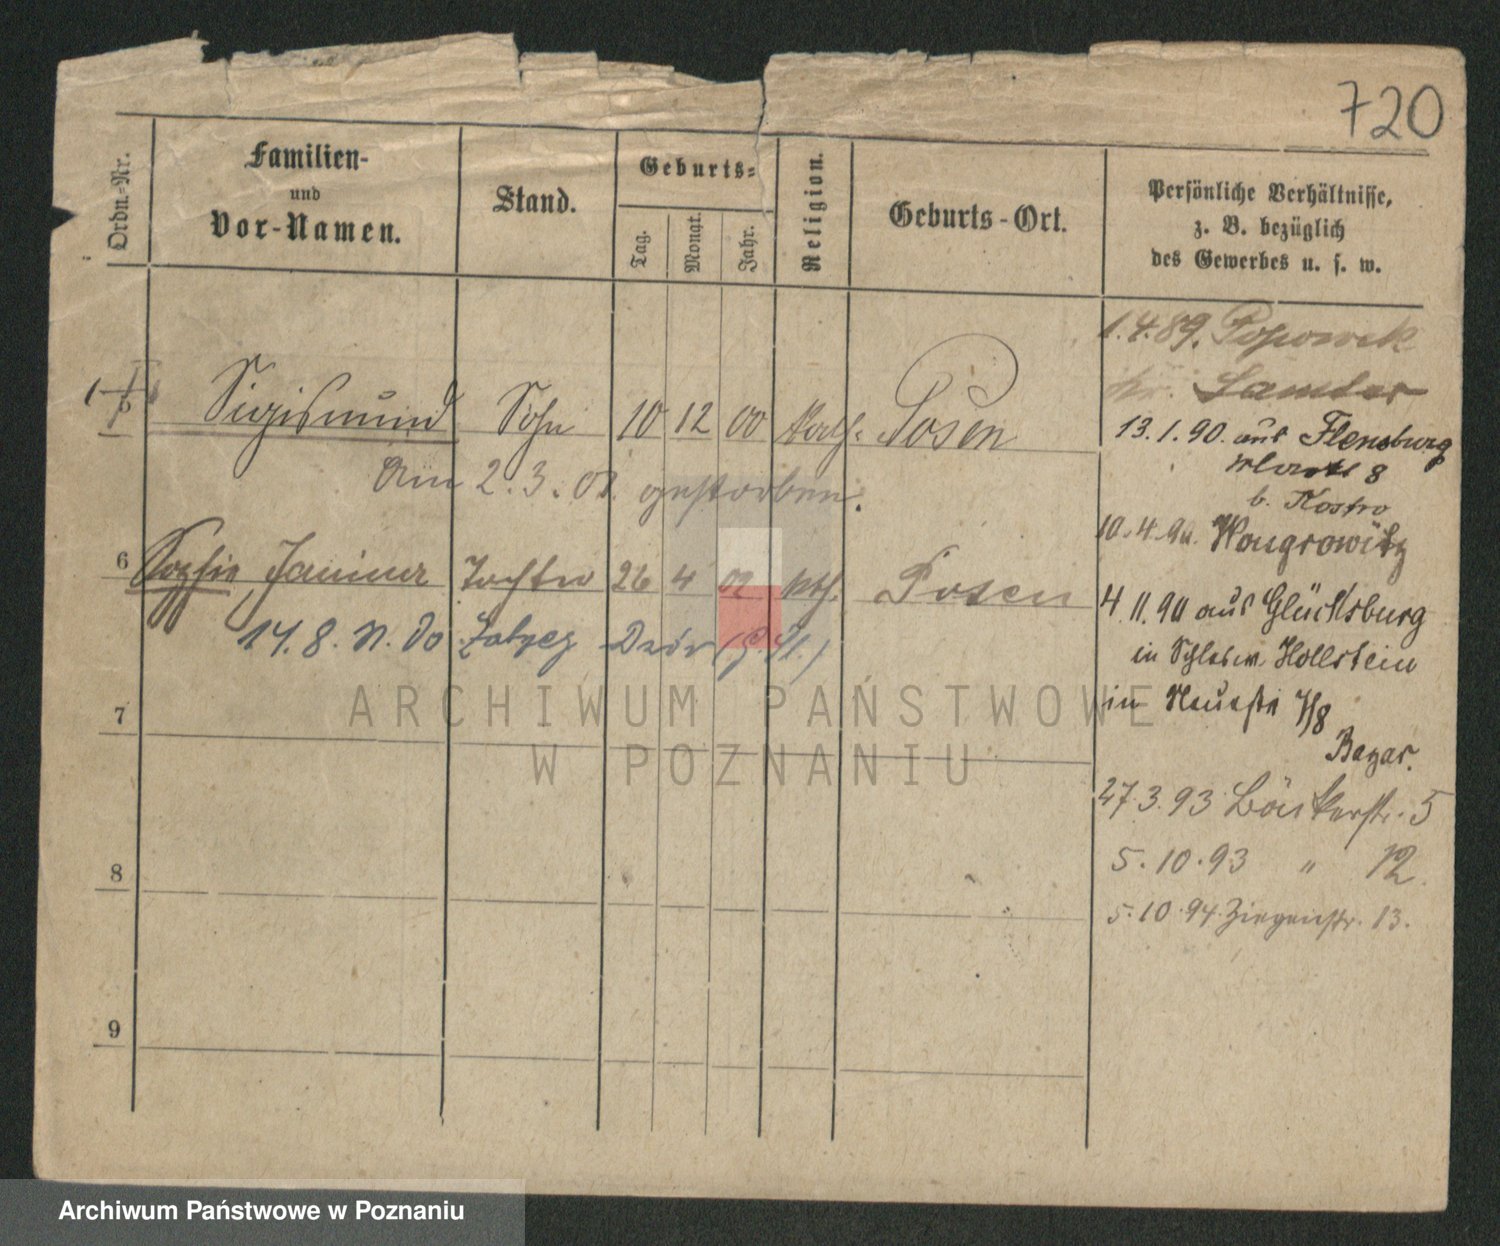 720
Ordn.-Nr.
Familien-
und
Vor-Namen.
Stand.
Geburts-
Tag.
Monat.
Jahr.
Religion.
Geburts-Ort.
Persönliche Verhältnisse,
z. B. bezüglich
des Gewerbes u. s. w.
1.4.89. Popowek
Kr. Samter
Sigismund Sohn 10 12 00 kath. Posen
Am 2.3.01. gestorben.
13.1.90. aus Flensburg
8
b. Kostro
10.4.90. Wongrowitz
6 Sophie, Janina Tochter 26 4 02 kth. Posen
14.8.11. do Zabrze Dwór
4.11.90 aus Glücksburg
in Schlesw. Hollstein
in Neuestr 7/8
Bazar.
7
27.3.93 Bäckerstr. 5
5.10.93 " 12
8
5.10.94. Ziegenstr. 13.
9
ARCHIWUM PAŃSTWOWE
W POZNANIU
Archiwum Państwowe w Poznaniu